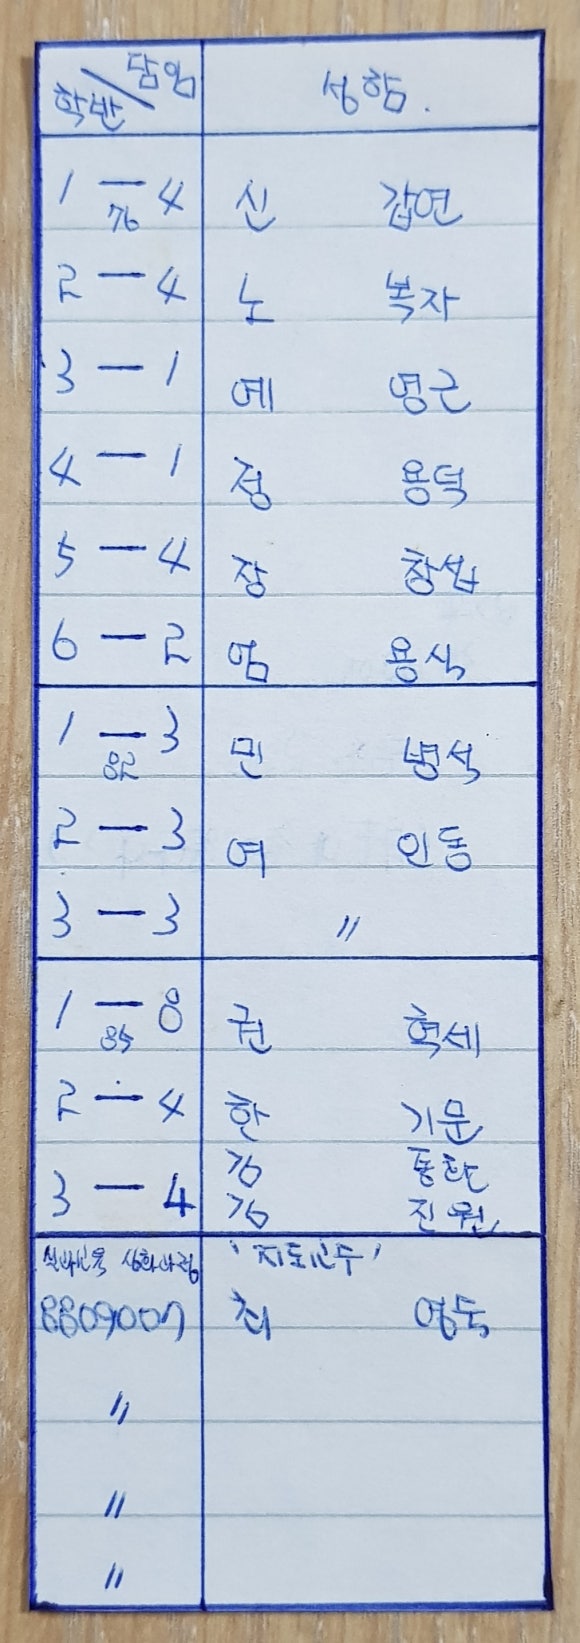 학반 담임 성함.
1 — 4 신 갑연
76
2 — 4 노 복자
3 — 1 예 영근
4 — 1 정 용덕
5 — 4 장 창섭
6 — 2 엄 용식
1 — 3 민 병석
82
2 — 3 여 인동
3 — 3 〃
1 — 8 권 혁세
85
2 — 4 한 기문
강 동환
3 — 4 강 진원
'지도교수'
8809007 최 영득
〃
〃
〃